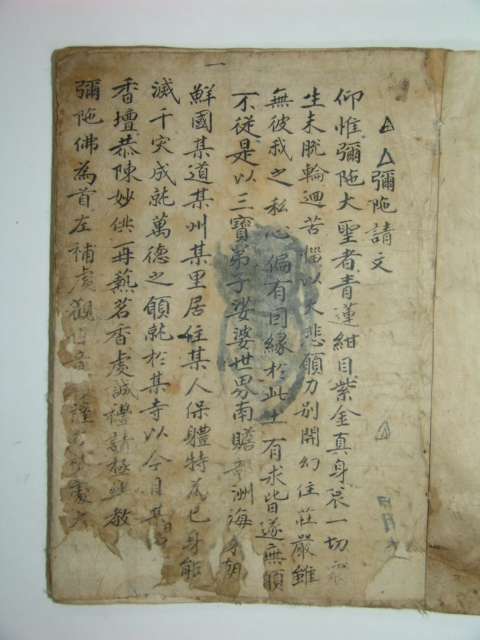 彌陀請文
仰惟彌陀大聖者青蓮紺目紫金真身哀一切衆
生未脫輪迴苦惱以大悲願力別開幻住莊嚴雖
無彼我之私心偏有因緣於此土有求皆遂無願
不從是以三寶弟子娑婆世界南贍部洲海東朝
鮮國某道某州某里居住某人保體特為己身能
滅千灾成就萬德之願就於某寺以今月某日
香壇恭陳妙供再爇茗香虔誠禮請極樂教
彌陀佛為首左補處觀世音
一